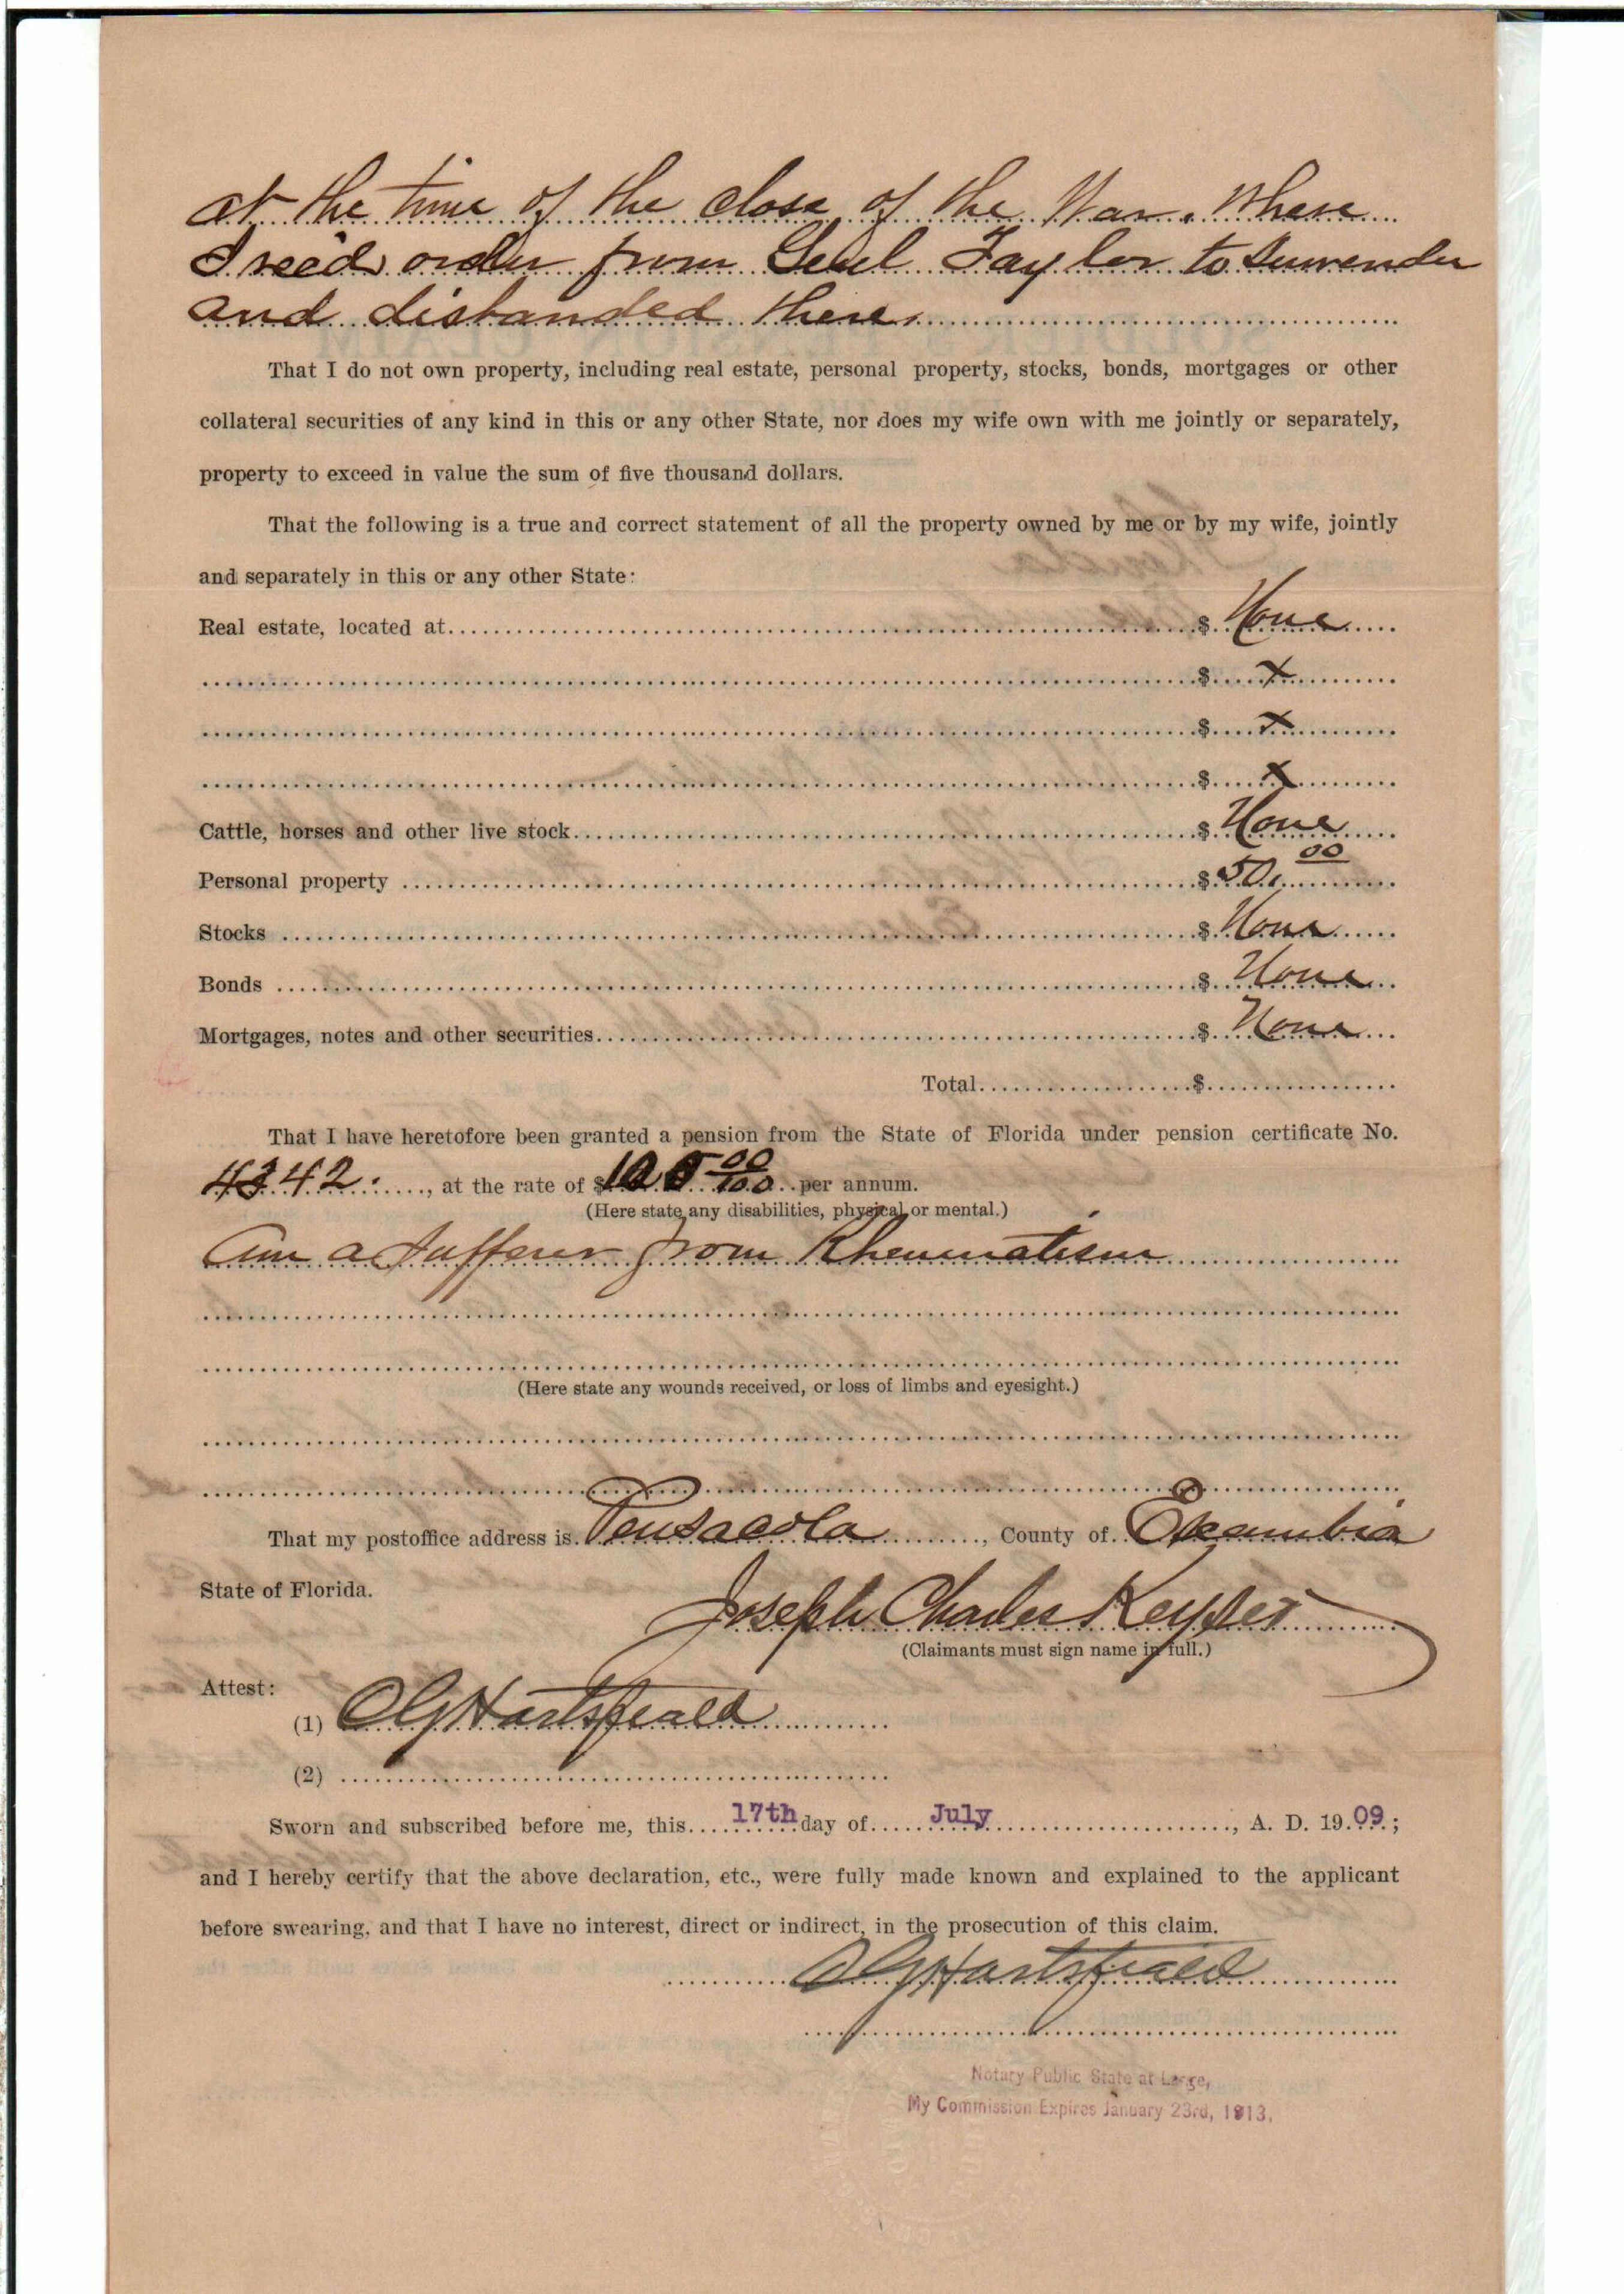 at the time of the close of the War. Where
I rec'd order from Genl Taylor to surrender
and disbanded there.
That I do not own property, including real estate, personal property, stocks, bonds, mortgages or other
collateral securities of any kind in this or any other State, nor does my wife own with me jointly or separately,
property to exceed in value the sum of five thousand dollars.
That the following is a true and correct statement of all the property owned by me or by my wife, jointly
and separately in this or any other State:
Real estate, located at $ None
$ x
$ x
$ x
Cattle, horses and other live stock $ None
Personal property $ 50.00
Stocks $ None
Bonds $ None
Mortgages, notes and other securities $ None
Total $
That I have heretofore been granted a pension from the State of Florida under pension certificate No.
4342, at the rate of $ 00/100 per annum.
(Here state any disabilities, physical or mental.)
Am a sufferer from Rheumatism
(Here state any wounds received, or loss of limbs and eyesight.)
That my postoffice address is Pensacola, County of Escambia
State of Florida.
Joseph Charles Keyser
(Claimants must sign name in full.)
Attest:
(1) Hartsfield
(2)
Sworn and subscribed before me, this 17th day of July, A. D. 1909;
and I hereby certify that the above declaration, etc., were fully made known and explained to the applicant
before swearing, and that I have no interest, direct or indirect, in the prosecution of this claim.
Hartsfield
Notary Public State at Large,
My Commission Expires January 23rd, 1913.